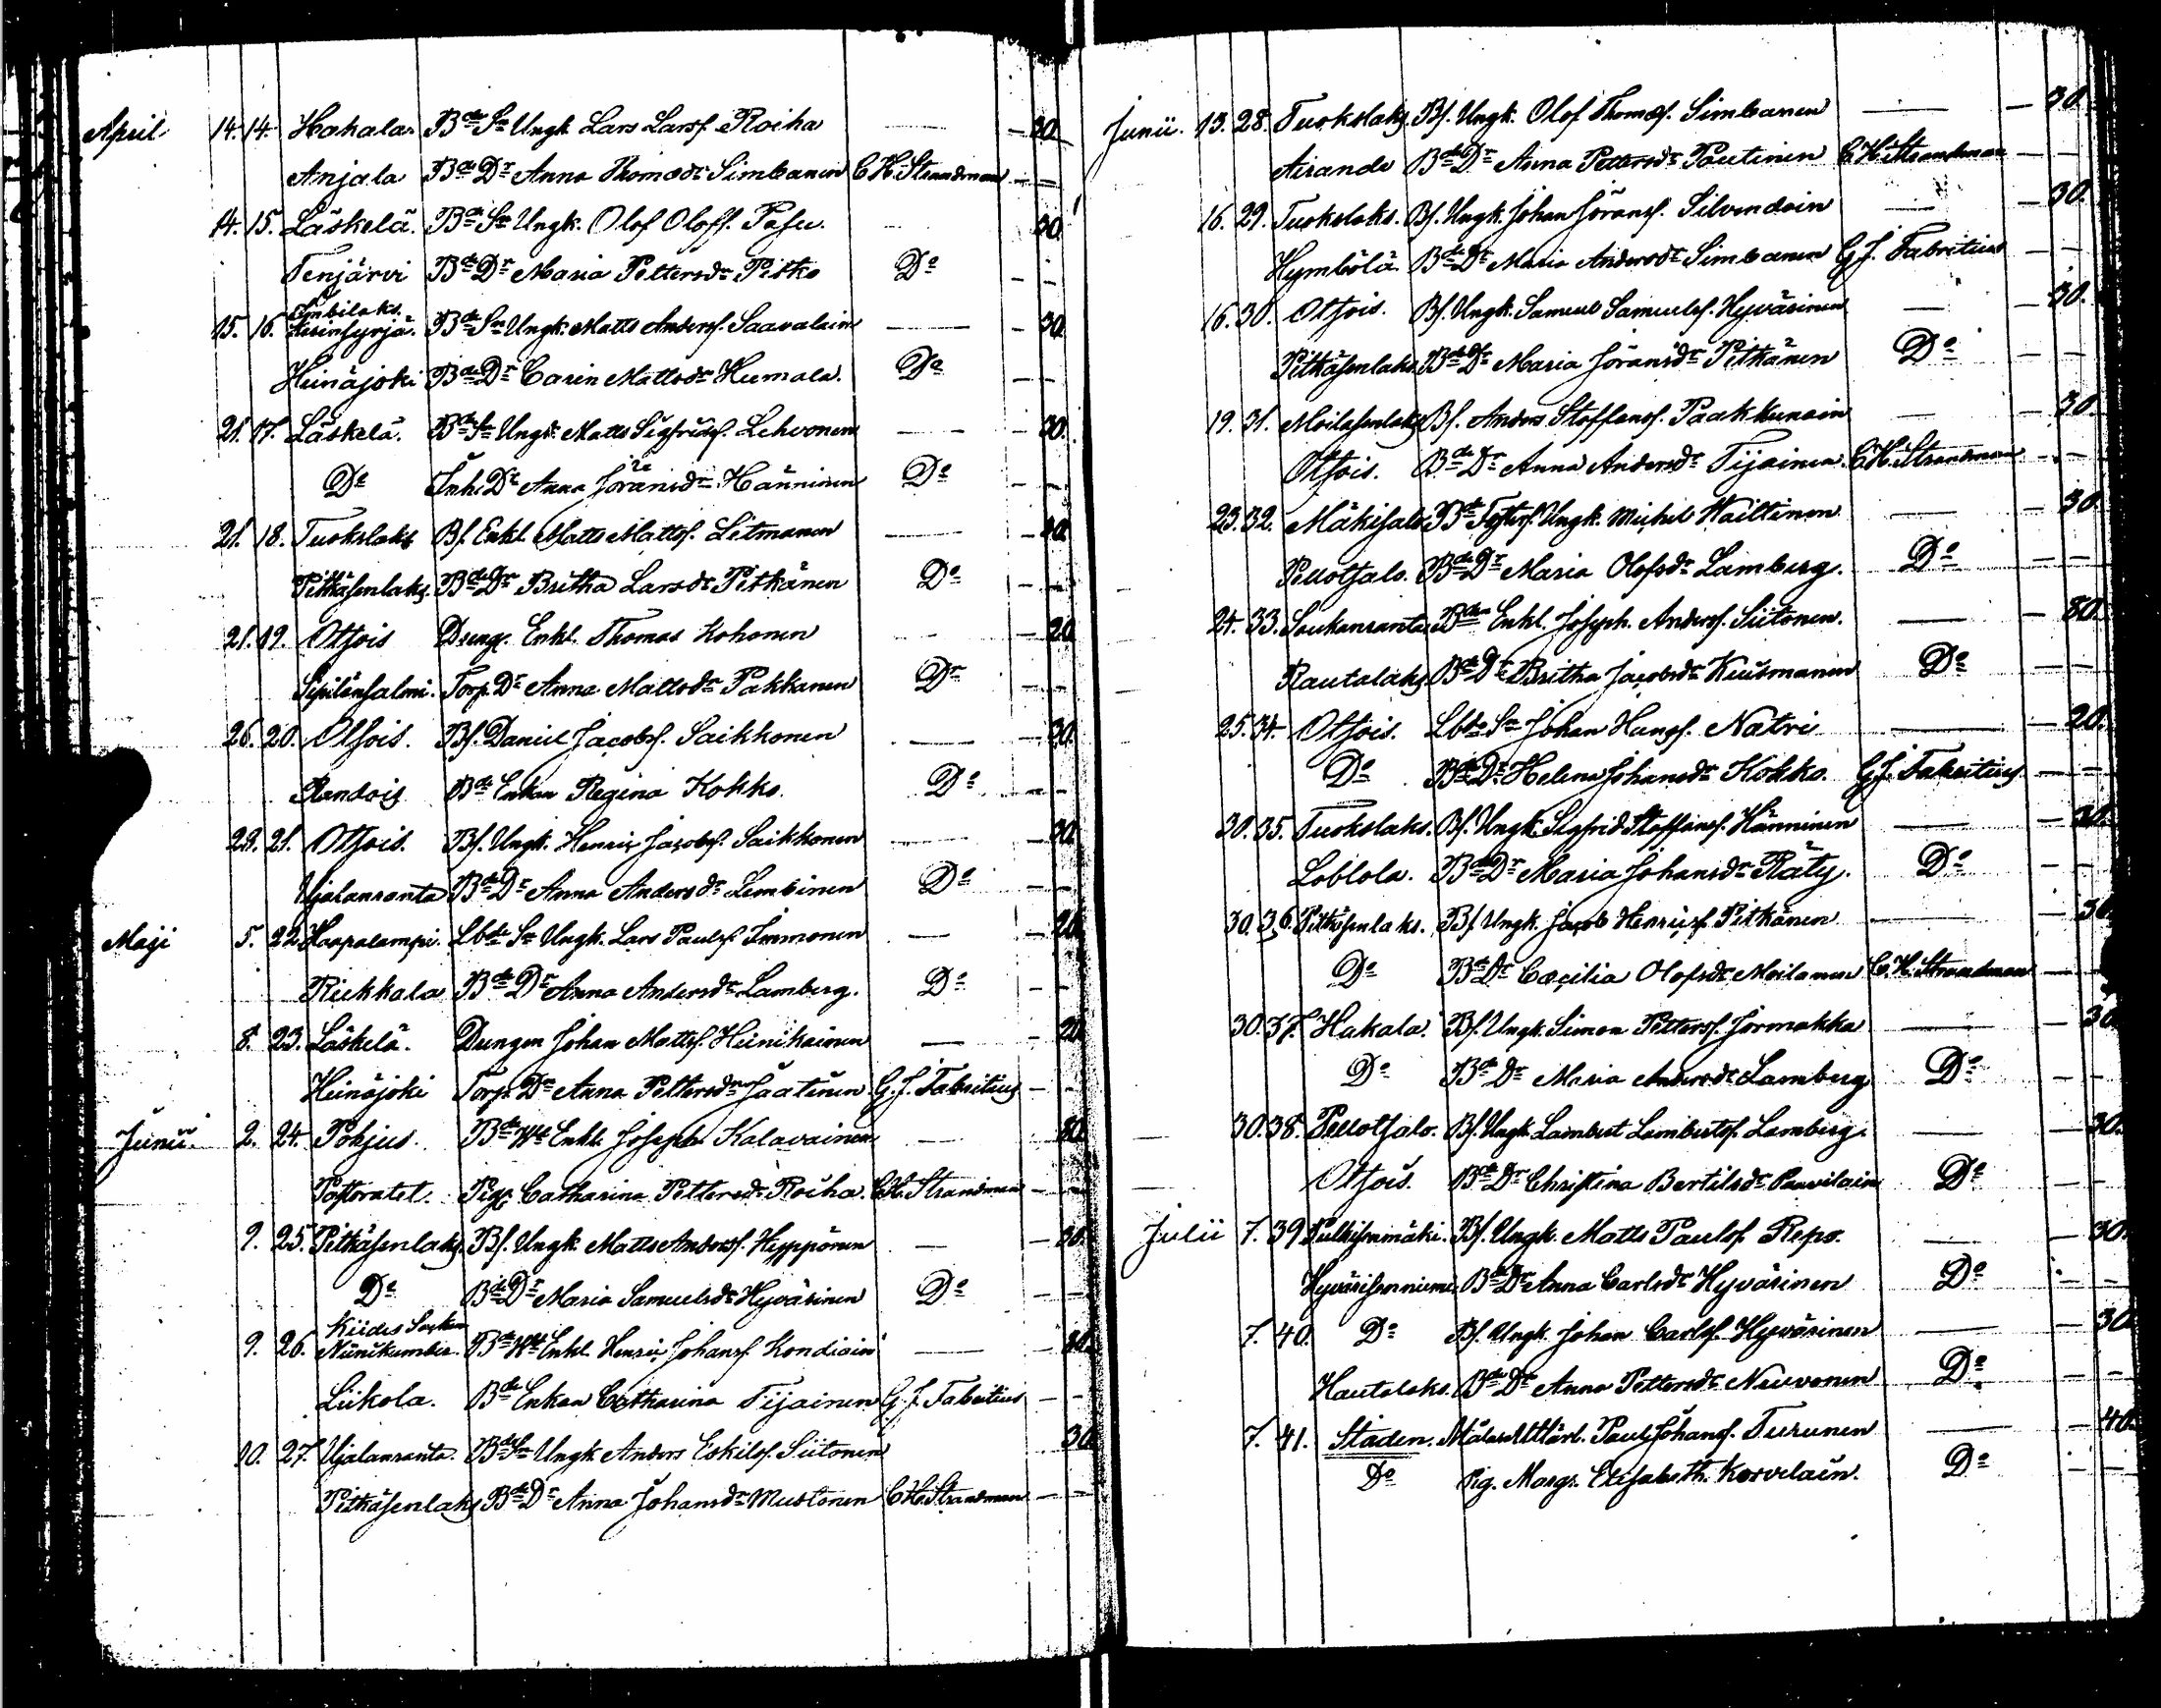 April 14. 14. Hakala Bde Sn Ungk. Lars Larsf. Roiha — — 30.
Anjala Bde Dr Anna Thomædr Simbanen C H. Strandman — —
14. 15. Läskelä. Bde Sn Ungk. Olof Oloff. Pafu. — 30.
Tenjärvi Bde Dr Maria Pettersdr Pitko Do — —
Imbilaks.
15. 16. Bde Sn Ungk. Matts Andersf. Saavalain — — 30.
Heinäjoki Bde Dr Carin Mattsdr Humala. Do — —
21. 17. Läskelä. Bde Sn Ungk. Matts Sigfridsf. Lehvonen — — 30.
Do Inh. Dr Anna Jöransdr Hänninen Do — —
21. 18. Tuokslaks Bf. Enkl. Matts Mattsf. Litmanen — —
Pitkäsenlaks. Bde Dr Britha Larsdr Pitkänen Do — —
21. 19. Otsois Dreng. Enkl. Thomas Kohonen — — 20.
Sipilänsalmi. Torp. Dr Anna Mattsdr Pakkanen Dr — —
26. 20. Otsois. Bf. Daniel Jacobsf. Saikkonen — — 30.
Randois Bde Enkan Regina Kokko. Do — —
29. 21. Otsois. Bf. Ungk. Henric Jacobsf. Saikkonen — — 30.
Ujalanranta Bde Dr Anna Andersdr Lembinen Do — —
Maji 5. 22. Haapalampi. Lbde Sn Ungk. Lars Paulsf. Immonen — — 20.
Riekkala Bde Dr Anna Andersdr Lamberg. Do — —
8. 23. Läskelä. Dungen Johan Mattsf. Heinikainen — — 20.
Heinäjoki Torp. Dr Anna Pettersdr Jäätinen G. J. Fabritius — —
Junii. 2. 24. Pohjus. Bde Enkl. Joseph Kalavainen —
Pastoratet. Pig. Catharina Pettersdr Roiha. C H. Strandman — —
9. 25. Pitkäsenlaks. Bf. Ungk. Matts Andersf. Hyppönen — — 30.
Do Bde Dr Maria Samuelsdr Hyväsinen Do — —
Kiides Socken
9. 26. Bde Enkl. Henric Johansf. Kondiain — —
Liikola. Bde Enkan Catharina Tijainen G J. Fabritius — —
10. 27. Ujalanranta. Bde Sn Ungk. Anders Eskilsf. Siitonen 30
Pitkäsenlaks Bde Dr Anna Johansdr Mustonen C H Strandman — —
Junii. 13. 28. Tuokslaks. Bf. Ungk. Olof Thomæf. Simbanen — — 30.
Airando Bde Dr Anna Pettersdr Poutinen C H Strandman — —
16. 29. Tuokslaks. Bf. Ungk. Johan Jöransf. Silvendoin — — 30.
Hymbölä Bde Dr Maria Andersdr Simbanen G J. Fabritius — —
16. 30. Otsois. Bf. Ungk. Samuel Samuelsf. Hyväsinen — — 30.
Pitkäsenlaks Bde Dr Maria Jöransdr Pitkänen Do — —
19. 31. Moilasenlaks Bf. Anders Staffansf. Paakkunain — — 30
Otsois. Bde Dr Anna Andersdr Tijainen C H. Strandman — —
23. 32. Mäkisalo Ungk. Michel Wäiltinen — — 30
Pellotsalo. Bde Dr Maria Olofsdr Lamberg. Do — —
24. 33. Soukanranta Bden Enkl. Joseph. Andersf. Siitonen. — — 80.
Rautalaks Bde Dr Britha Jacobsdr Kuusmanen Do — —
25. 34. Otsois. Lbde Sn Johan Hansf. Natri — — 20.
Do Bde Dr Helena Johansdr Kokko. G J. Fabritius — —
30. 35. Tuokslaks. Bf. Ungk. Sigfrid Staffansf. Hänninen — — 30.
Loblola. Bde Dr Maria Johansdr Räty. Do — —
30. 36. Pitkäsenlaks. Bf. Ungk. Jacob Henricsf. Pitkänen — — 30
Do Bde Dr Cæcilia Olofsdr Moilanen C. H. Strandman — —
30. 37. Hakala. Bf. Ungk. Simon Pettersf. Jormakka — — 30
Do Bde Dr Maria Andersdr Lamberg Do — —
30. 38. Pellotsalo. Bf. Ungk. Lambert Lambertsf. Lamberg. — — 30.
Otsois. Bde Dr Christina Bertilsdr Paavilain Do — —
Julii 7. 39. Pulkisenmäki. Bf. Ungk. Matts Paulsf. Repo. — — 30.
Hyväsisenniemi. Bde Dr Anna Carlsdr Hyväsinen Do — —
7. 40. Do Bf. Ungk. Johan Carlsf. Hyväsinen — — 30
Hautalaks. Bde Dr Anna Pettersdr Neuvonen Do — —
7. 41. Staden. Paul Johansf. Turunen — — 40.
Do Pig. Margr. Elisabeth. Korvelain. Do — —